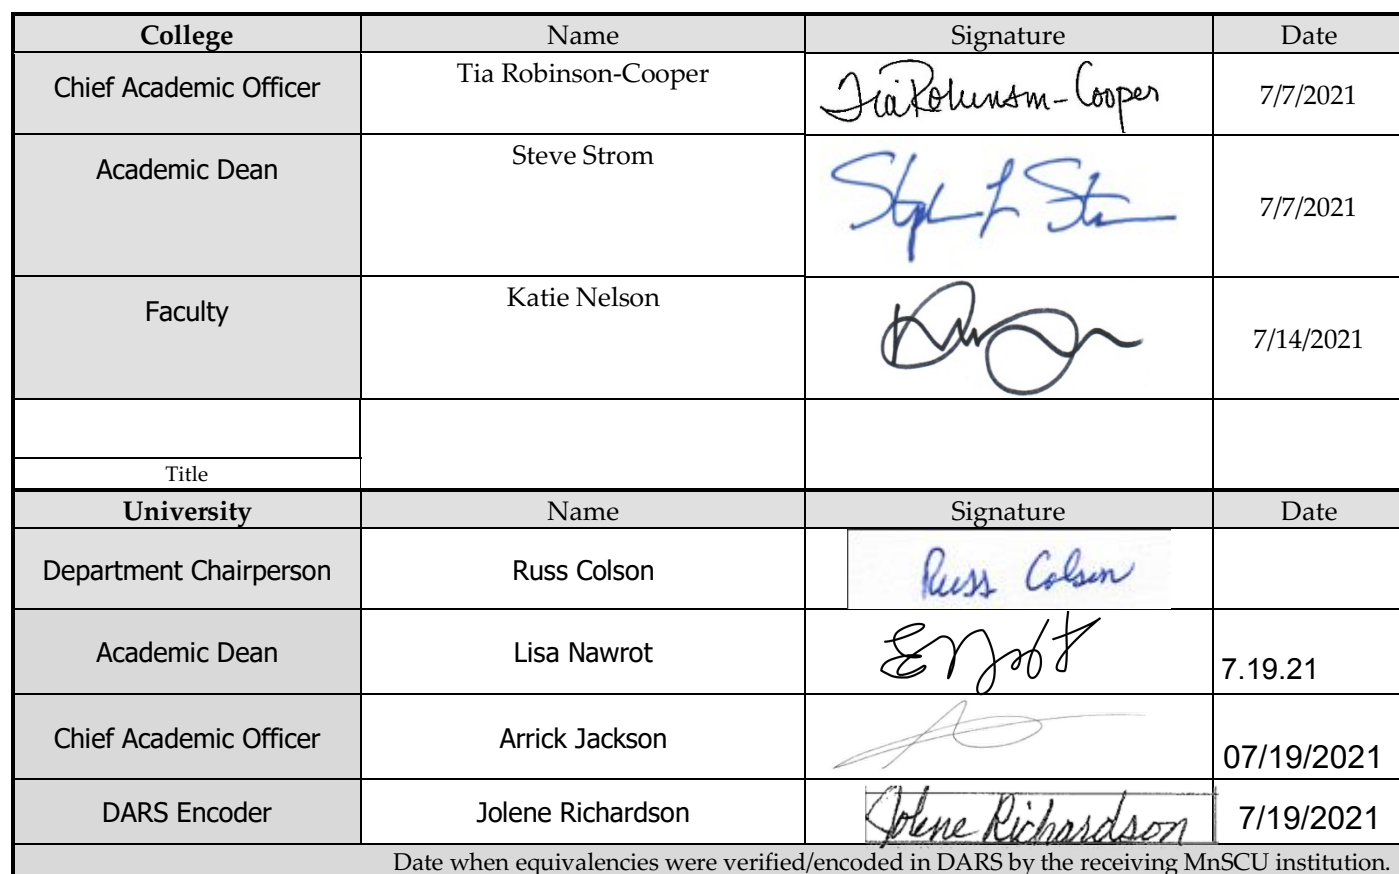 College Name Signature Date
Chief Academic Officer Tia Robinson-Cooper Tia Robinson-Cooper 7/7/2021
Academic Dean Steve Strom 7/7/2021
Faculty Katie Nelson 7/14/2021
Title
University Name Signature Date
Department Chairperson Russ Colson Russ Colson
Academic Dean Lisa Nawrot 7.19.21
Chief Academic Officer Arrick Jackson 07/19/2021
DARS Encoder Jolene Richardson Jolene Richardson 7/19/2021
Date when equivalencies were verified/encoded in DARS by the receiving MnSCU institution.